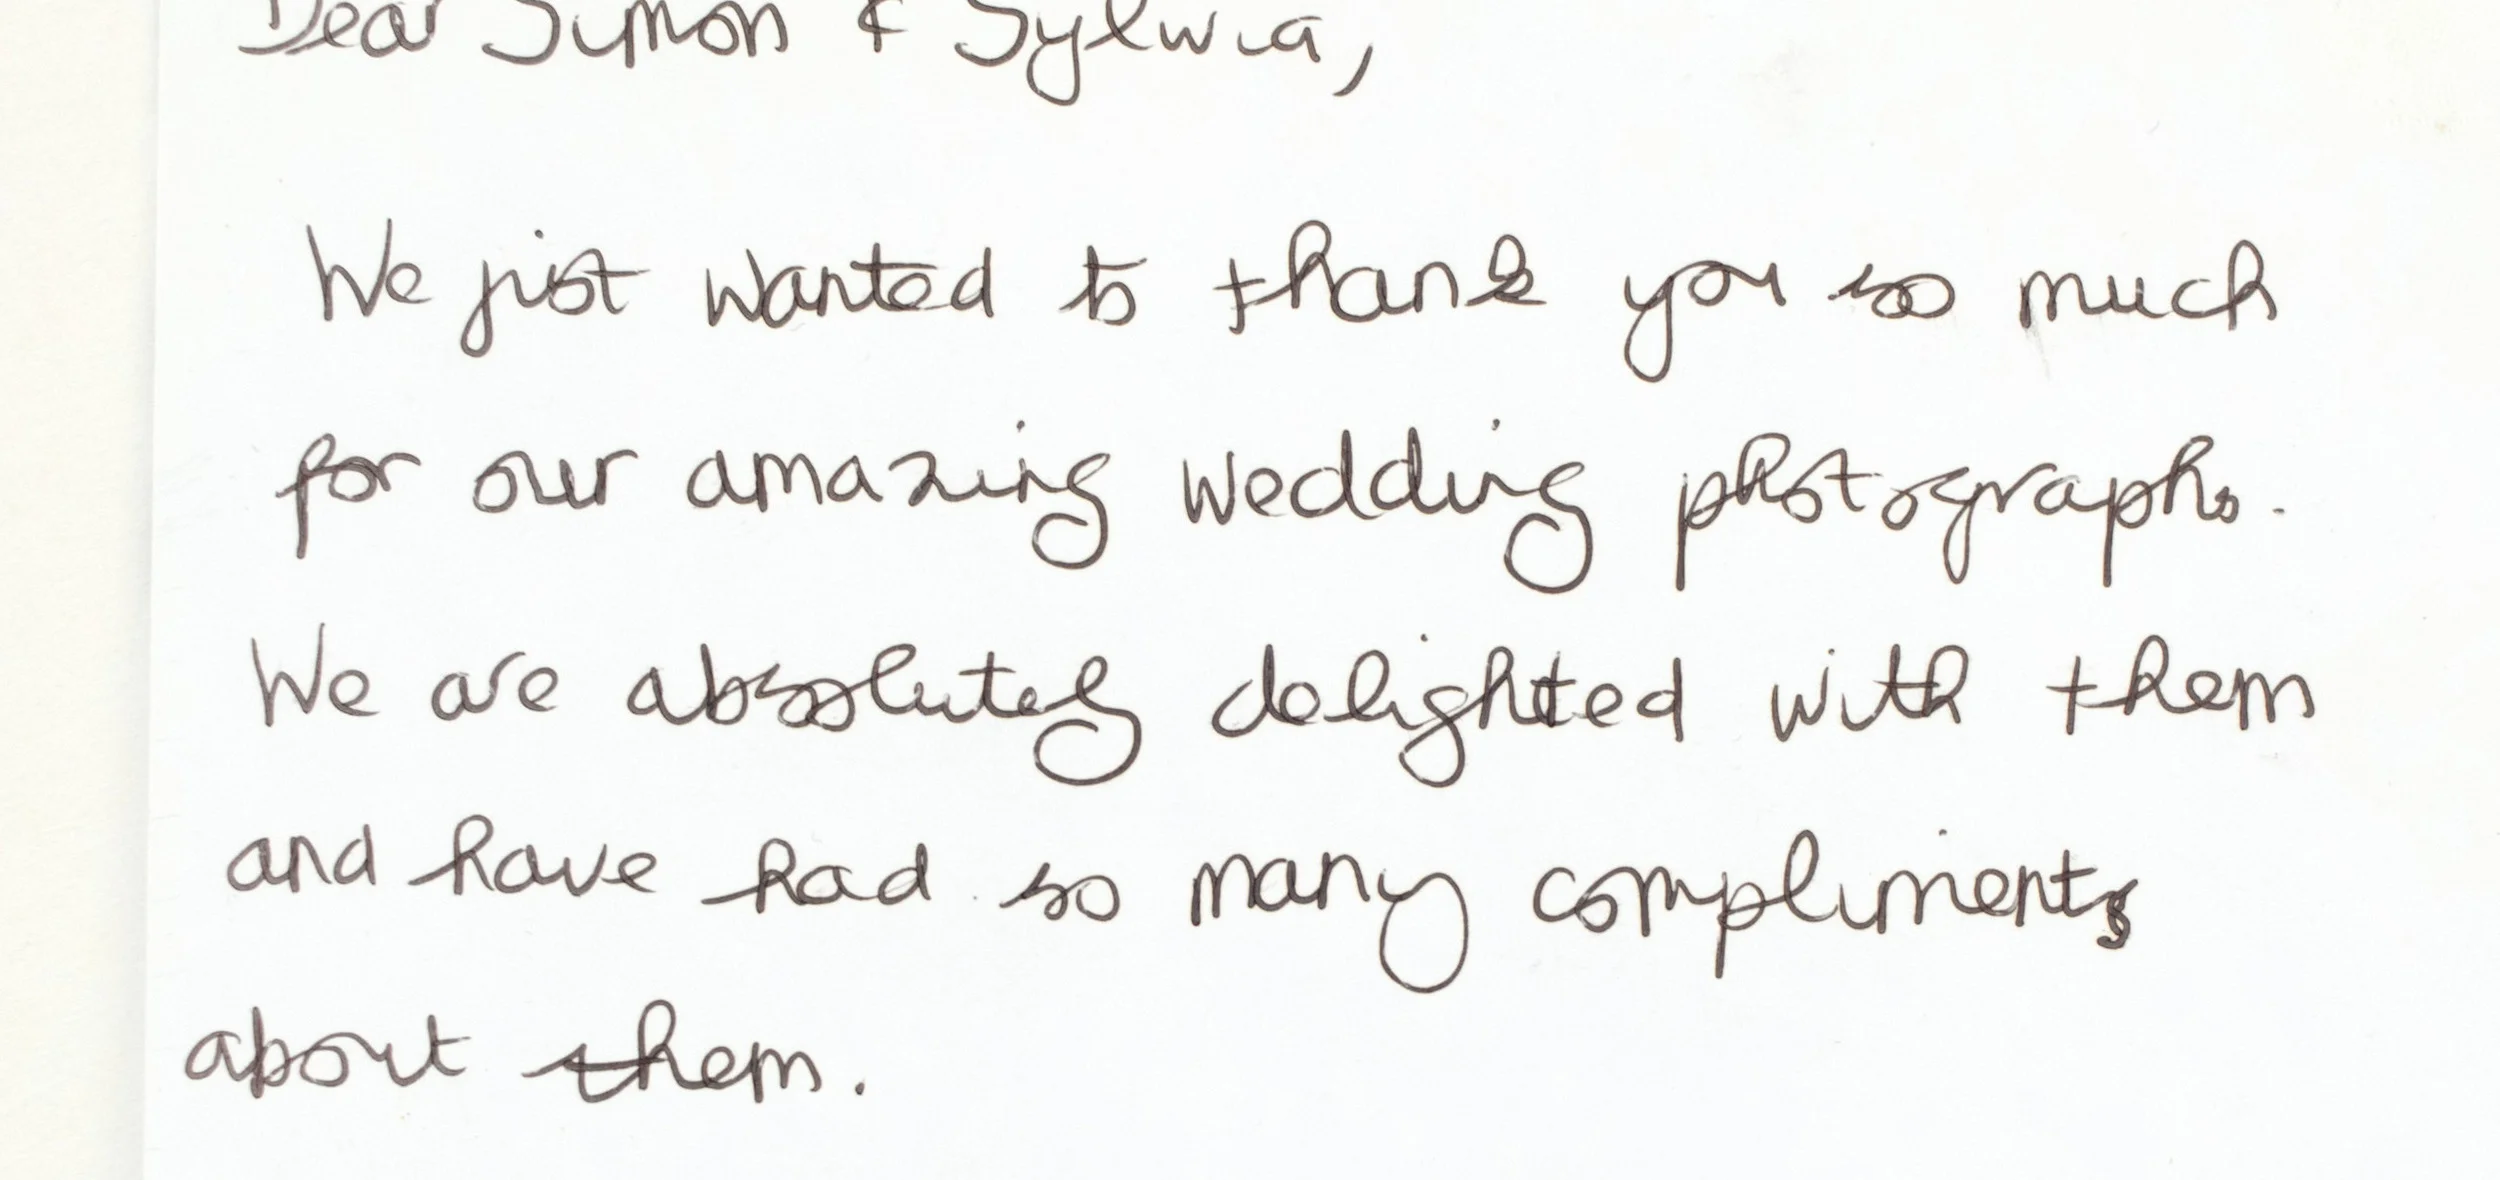 Dear Simon & Sylwia,
We just wanted to thank you so much
for our amazing wedding photographs.
We are absolutely delighted with them
and have had so many compliments
about them.